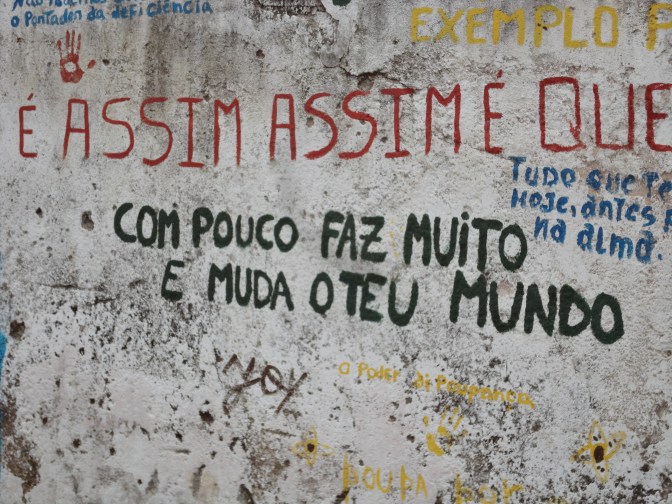 o Pontador da deficiência
EXEMPLO
É ASSIM ASSIM É QUE
TUDO QUE
HOJE, ANTES
na alma.
COM POUCO FAZ MUITO
E MUDA O TEU MUNDO
O PODER DI POUPANÇA
POUPA